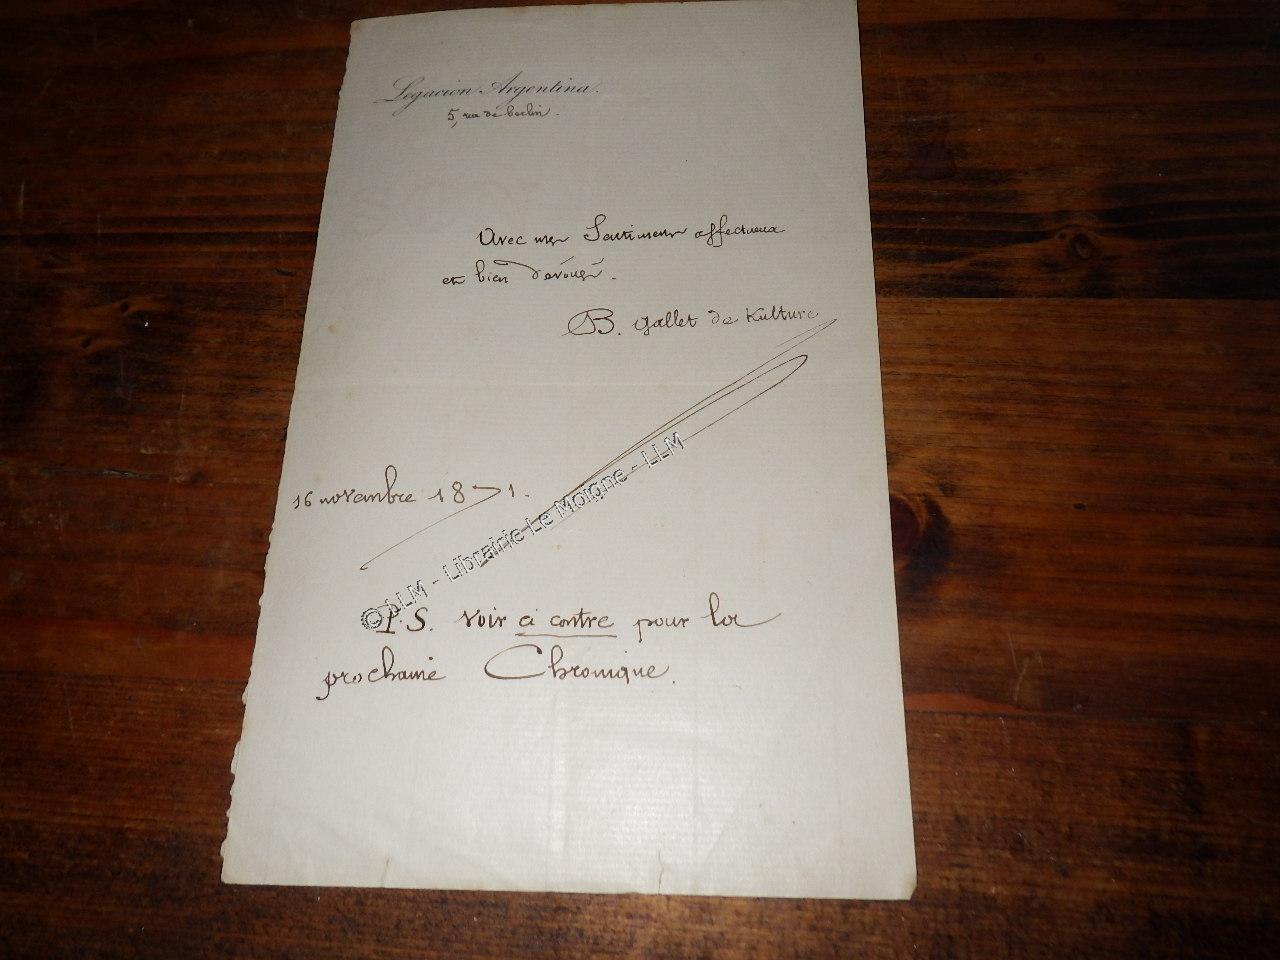 Legacion Argentina.
5, rue de berlin.
Avec mes Sentiments affectueux
et bien dévoués.
B. Gallet de Kulture
16 novembre 1871.
© LLM - Librairie Le Moigne - LLM
P.S. voir ci contre pour la
prochaine Chronique.